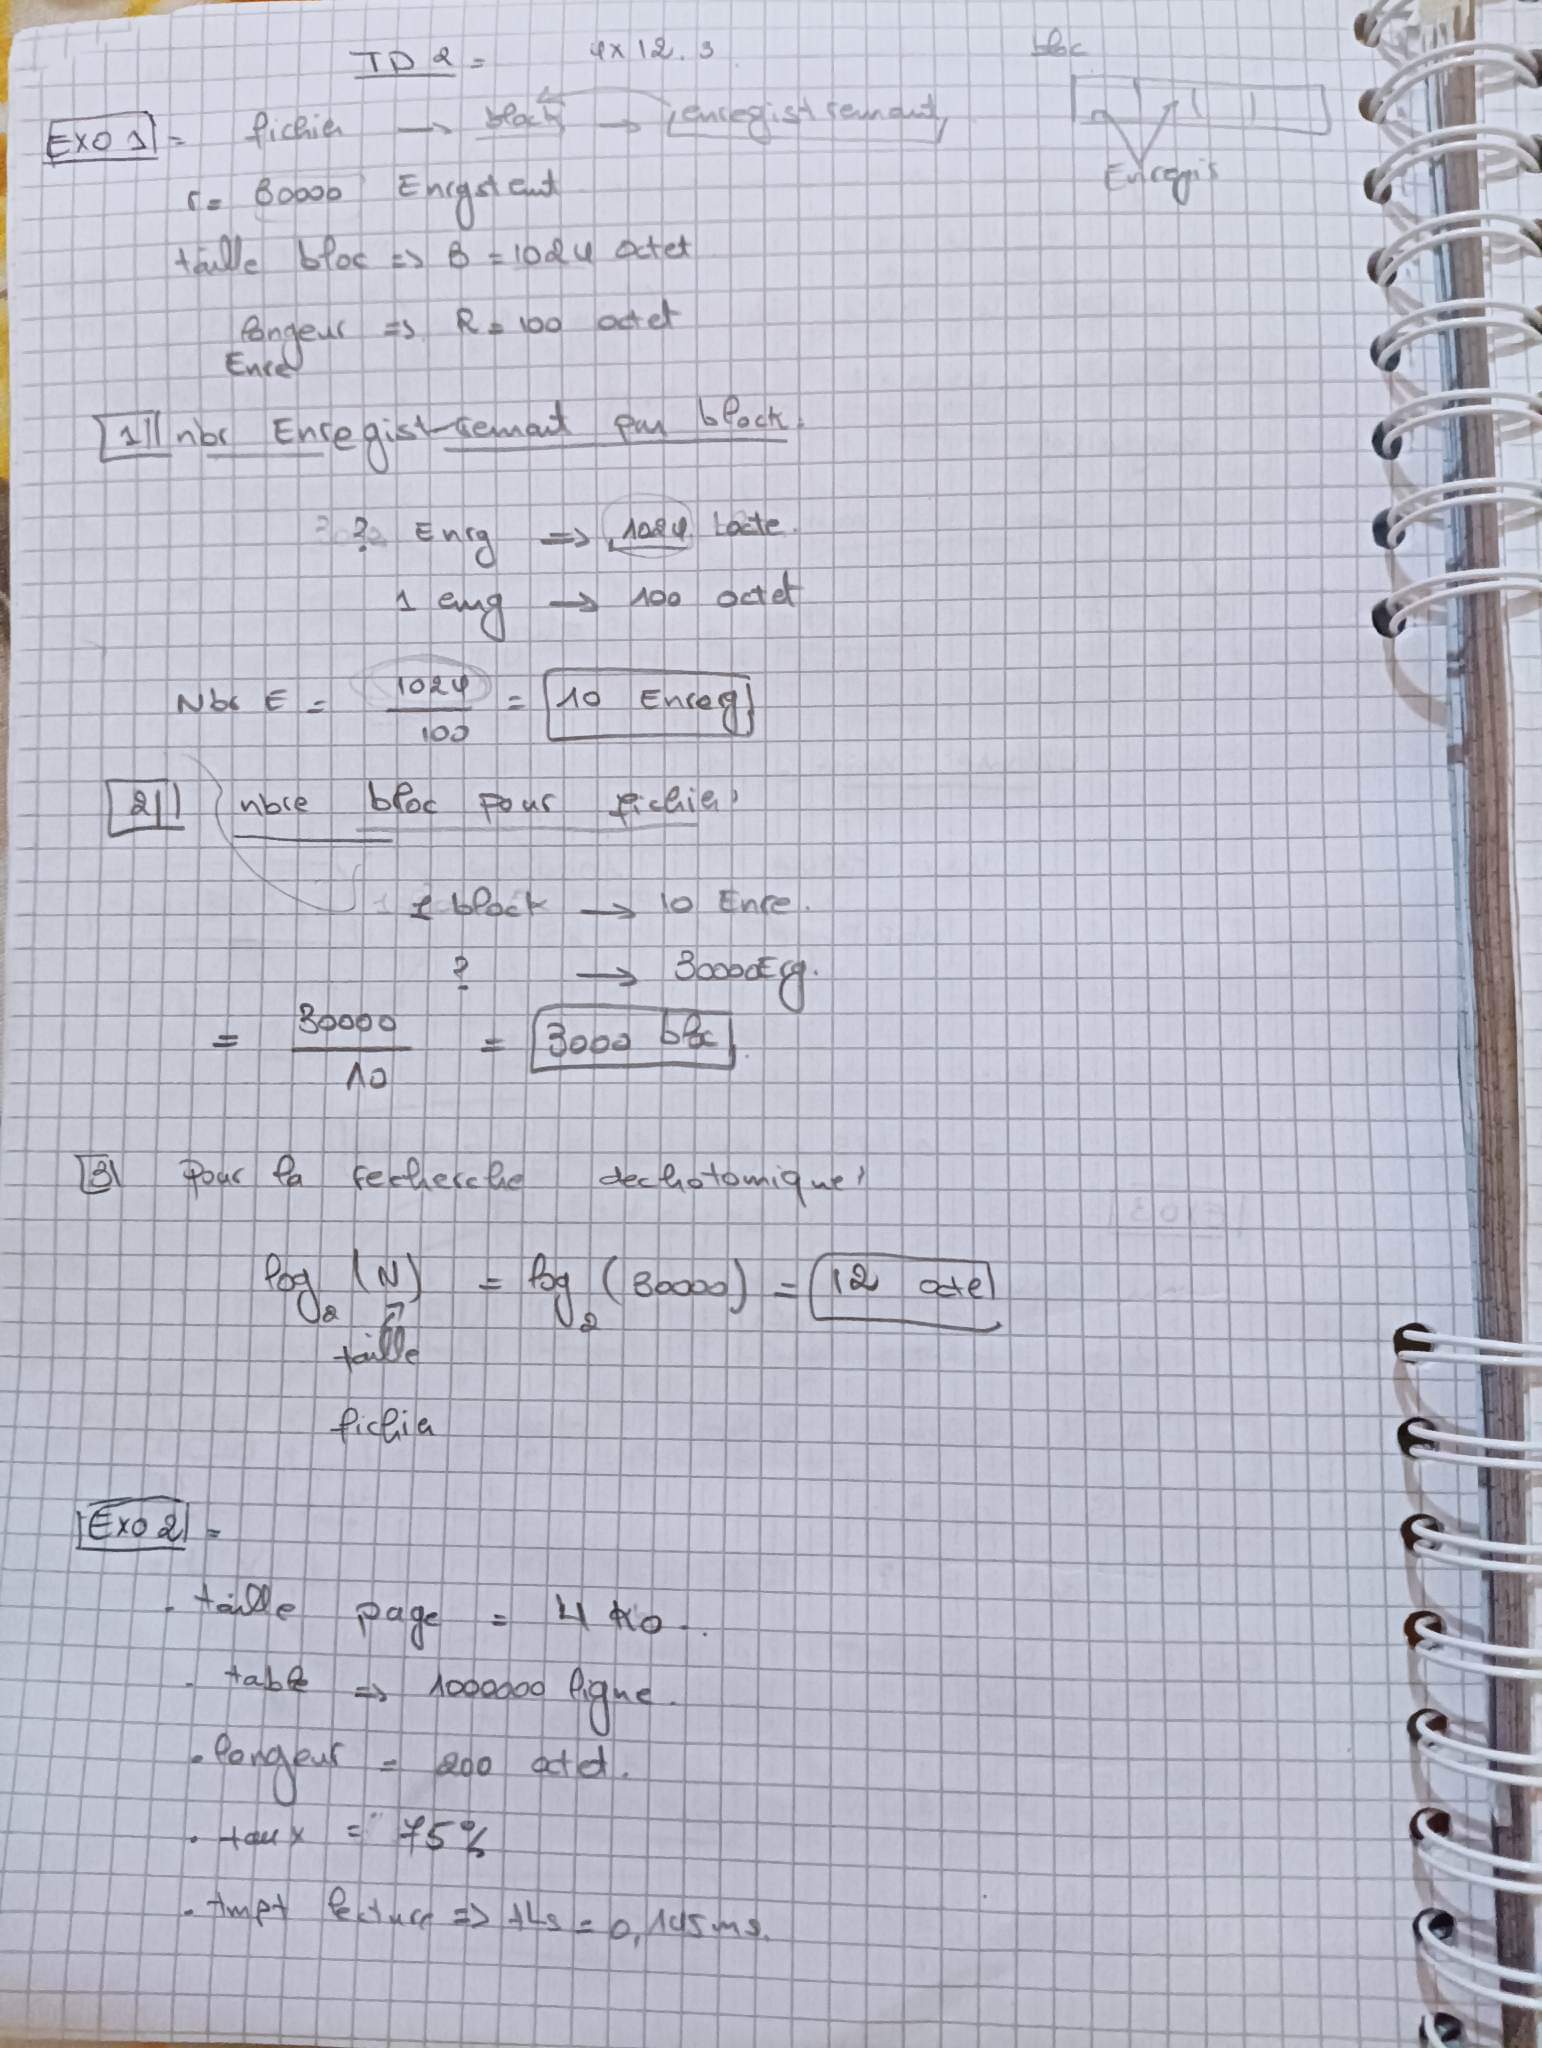 TD 2 = 4x12.3
bloc
EXO 1 = fichier → block → enregistremant
Enregis
r = 30000 Engstent
taille bloc => B = 1024 octet
longeur => R = 100 octet
Enre
1 nbr Enregistremant par block:
? Enrg => 1024
1 enrg → 100 octet
Nbr E = 1024 / 100 = 10 Enreg
2 nbre bloc pour fichier
1 block → 10 Enre.
? → 30000 Erg.
= 30000 / 10 = 3000 bloc
3 pour la recherche dechotomique
log2 (N) = log2 (30000) = 12 octet
taille
fichier
Exo 2 =
. taille page = 4 Ko.
. table => 1000000 ligne.
. longeur = 200 octet.
. taux = 75%
. tmpt lecture => tLs = 0,145ms.